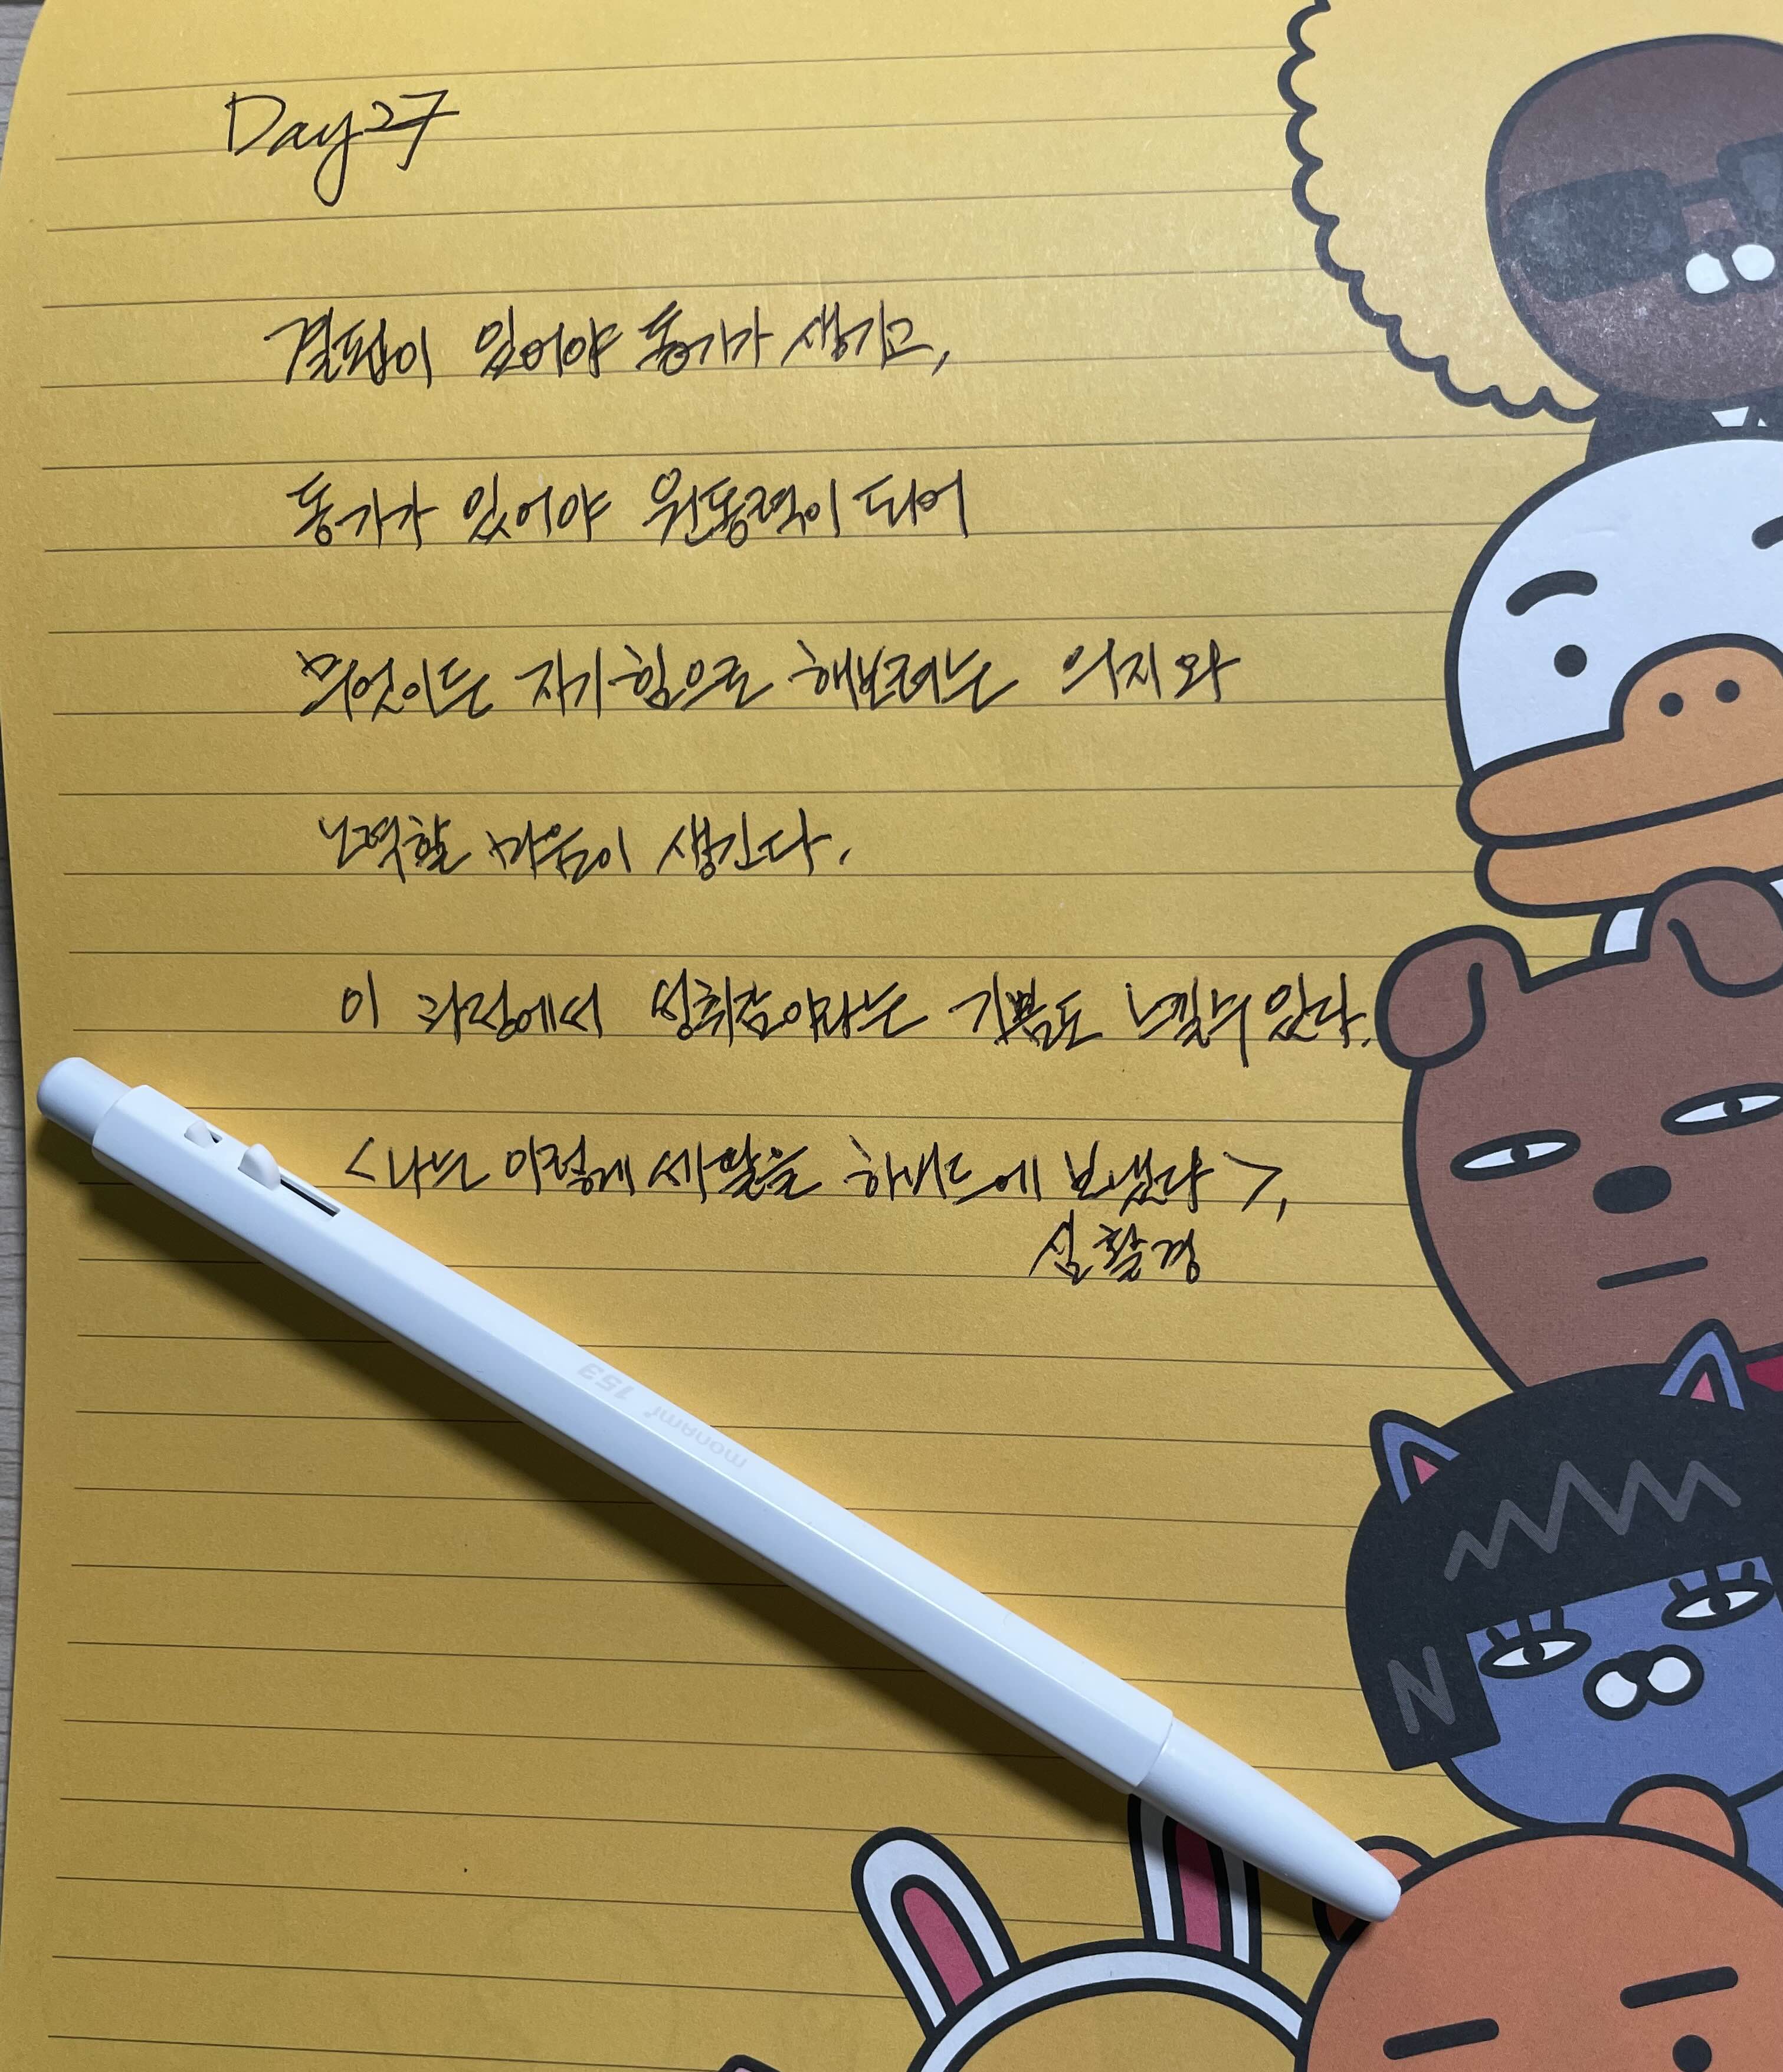 Day 27
결핍이 있어야 동기가 생기고,
동기가 있어야 원동력이 되어
무엇이든 자기 힘으로 해보려는 의지와
노력할 마음이 생긴다.
이 과정에서 성취감이라는 기쁨도 느낄 수 있다.
<나는 이렇게 세 딸을 하버드에 보냈다>,
심활경
monami 153
N